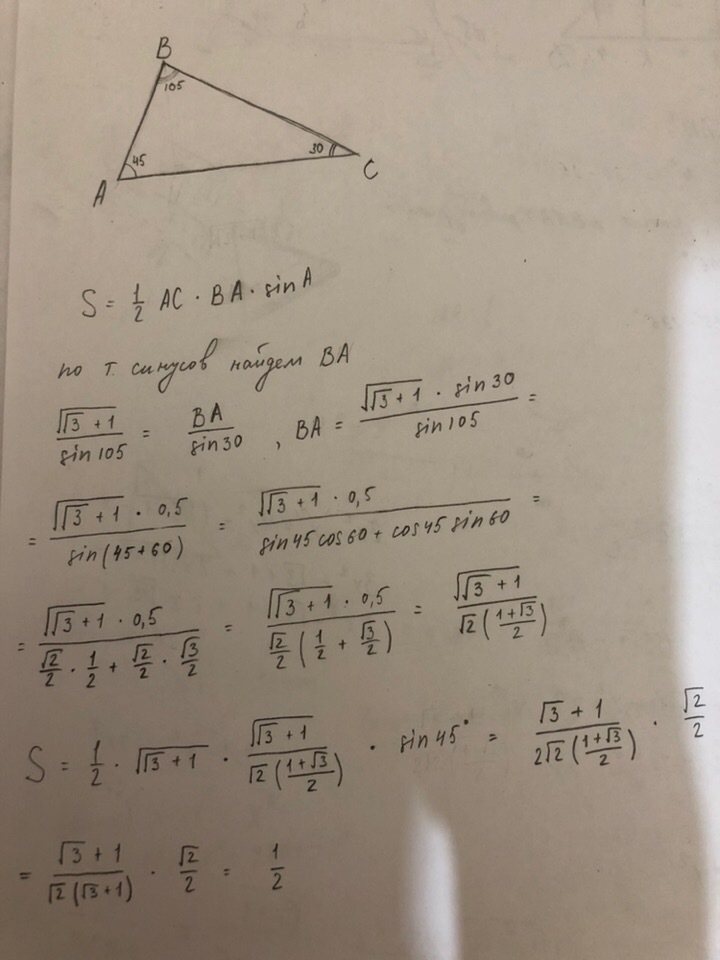 B
105
45
30
A
C
S = 1/2 AC · BA · sin A
по т. синусов найдем BA
√(√3 + 1) / sin 105 = BA / sin 30 , BA = √(√3 + 1) · sin 30 / sin 105 =
= √(√3 + 1) · 0,5 / sin(45+60) = √(√3 + 1) · 0,5 / (sin 45 cos 60 + cos 45 sin 60) =
= √(√3 + 1) · 0,5 / (√2/2 · 1/2 + √2/2 · √3/2) = √(√3 + 1) · 0,5 / (√2/2 (1/2 + √3/2)) = √(√3 + 1) / (√2 ((1+√3)/2))
S = 1/2 · √(√3 + 1) · √(√3 + 1) / (√2 ((1+√3)/2)) · sin 45° = (√3 + 1) / (2√2 ((1+√3)/2)) · √2/2
= (√3 + 1) / (√2 (√3 + 1)) · √2/2 = 1/2